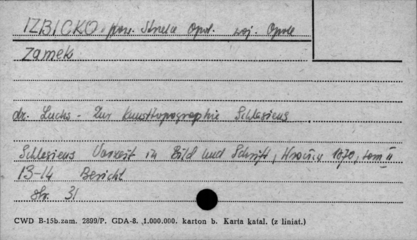 IZBICKO, pow. Strzelce Opol. woj. Opole
Zamek
dr. Luchs - Zur Kunsttopographie Schlesiens
Schlesiens Vorzeit in Bild und Schrift, 1870, tom II
13-14 Bericht
str. 31
CWD B-15b.zam. 2899/P. GDA-8. 1.000.000. karton b. Karta katal. (z liniat.)